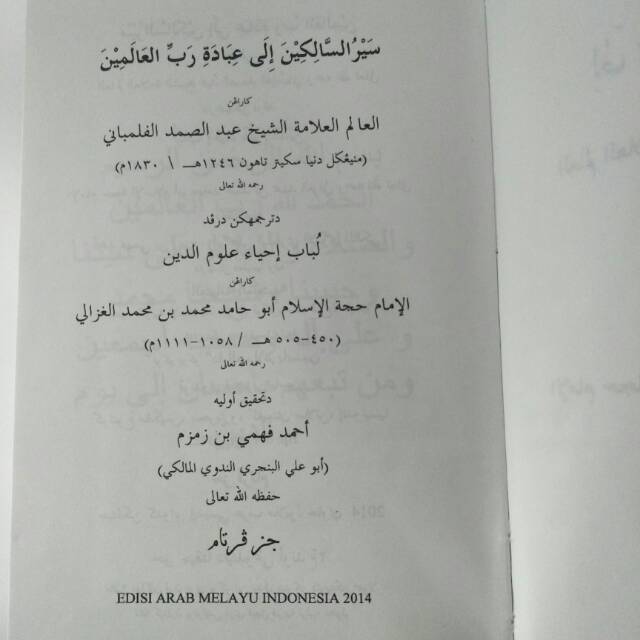 سَيْرُ السَّالِكِيْنَ إِلَى عِبَادَةِ رَبِّ العَالَمِيْنَ
كاراڠن
العالم العلامة الشيخ عبد الصمد الفلمباني
(منيڠگل دنيا سكيتر تاهون ١٢٤٦هـ \ ١٨٣٠م)
رحمه الله تعالى
دترجمهكن درڤد
لُباب إحياء علوم الدين
كاراڠن
الإمام حجة الإسلام أبو حامد محمد بن محمد الغزالي
(٤٥٠-٥٠٥ هـ / ١٠٥٨-١١١١م)
رحمه الله تعالى
دتحقيق أوليه
أحمد فهمي بن زمزم
(أبو علي البنجري الندوي المالكي)
حفظه الله تعالى
جزء ڤرتام
EDISI ARAB MELAYU INDONESIA 2014